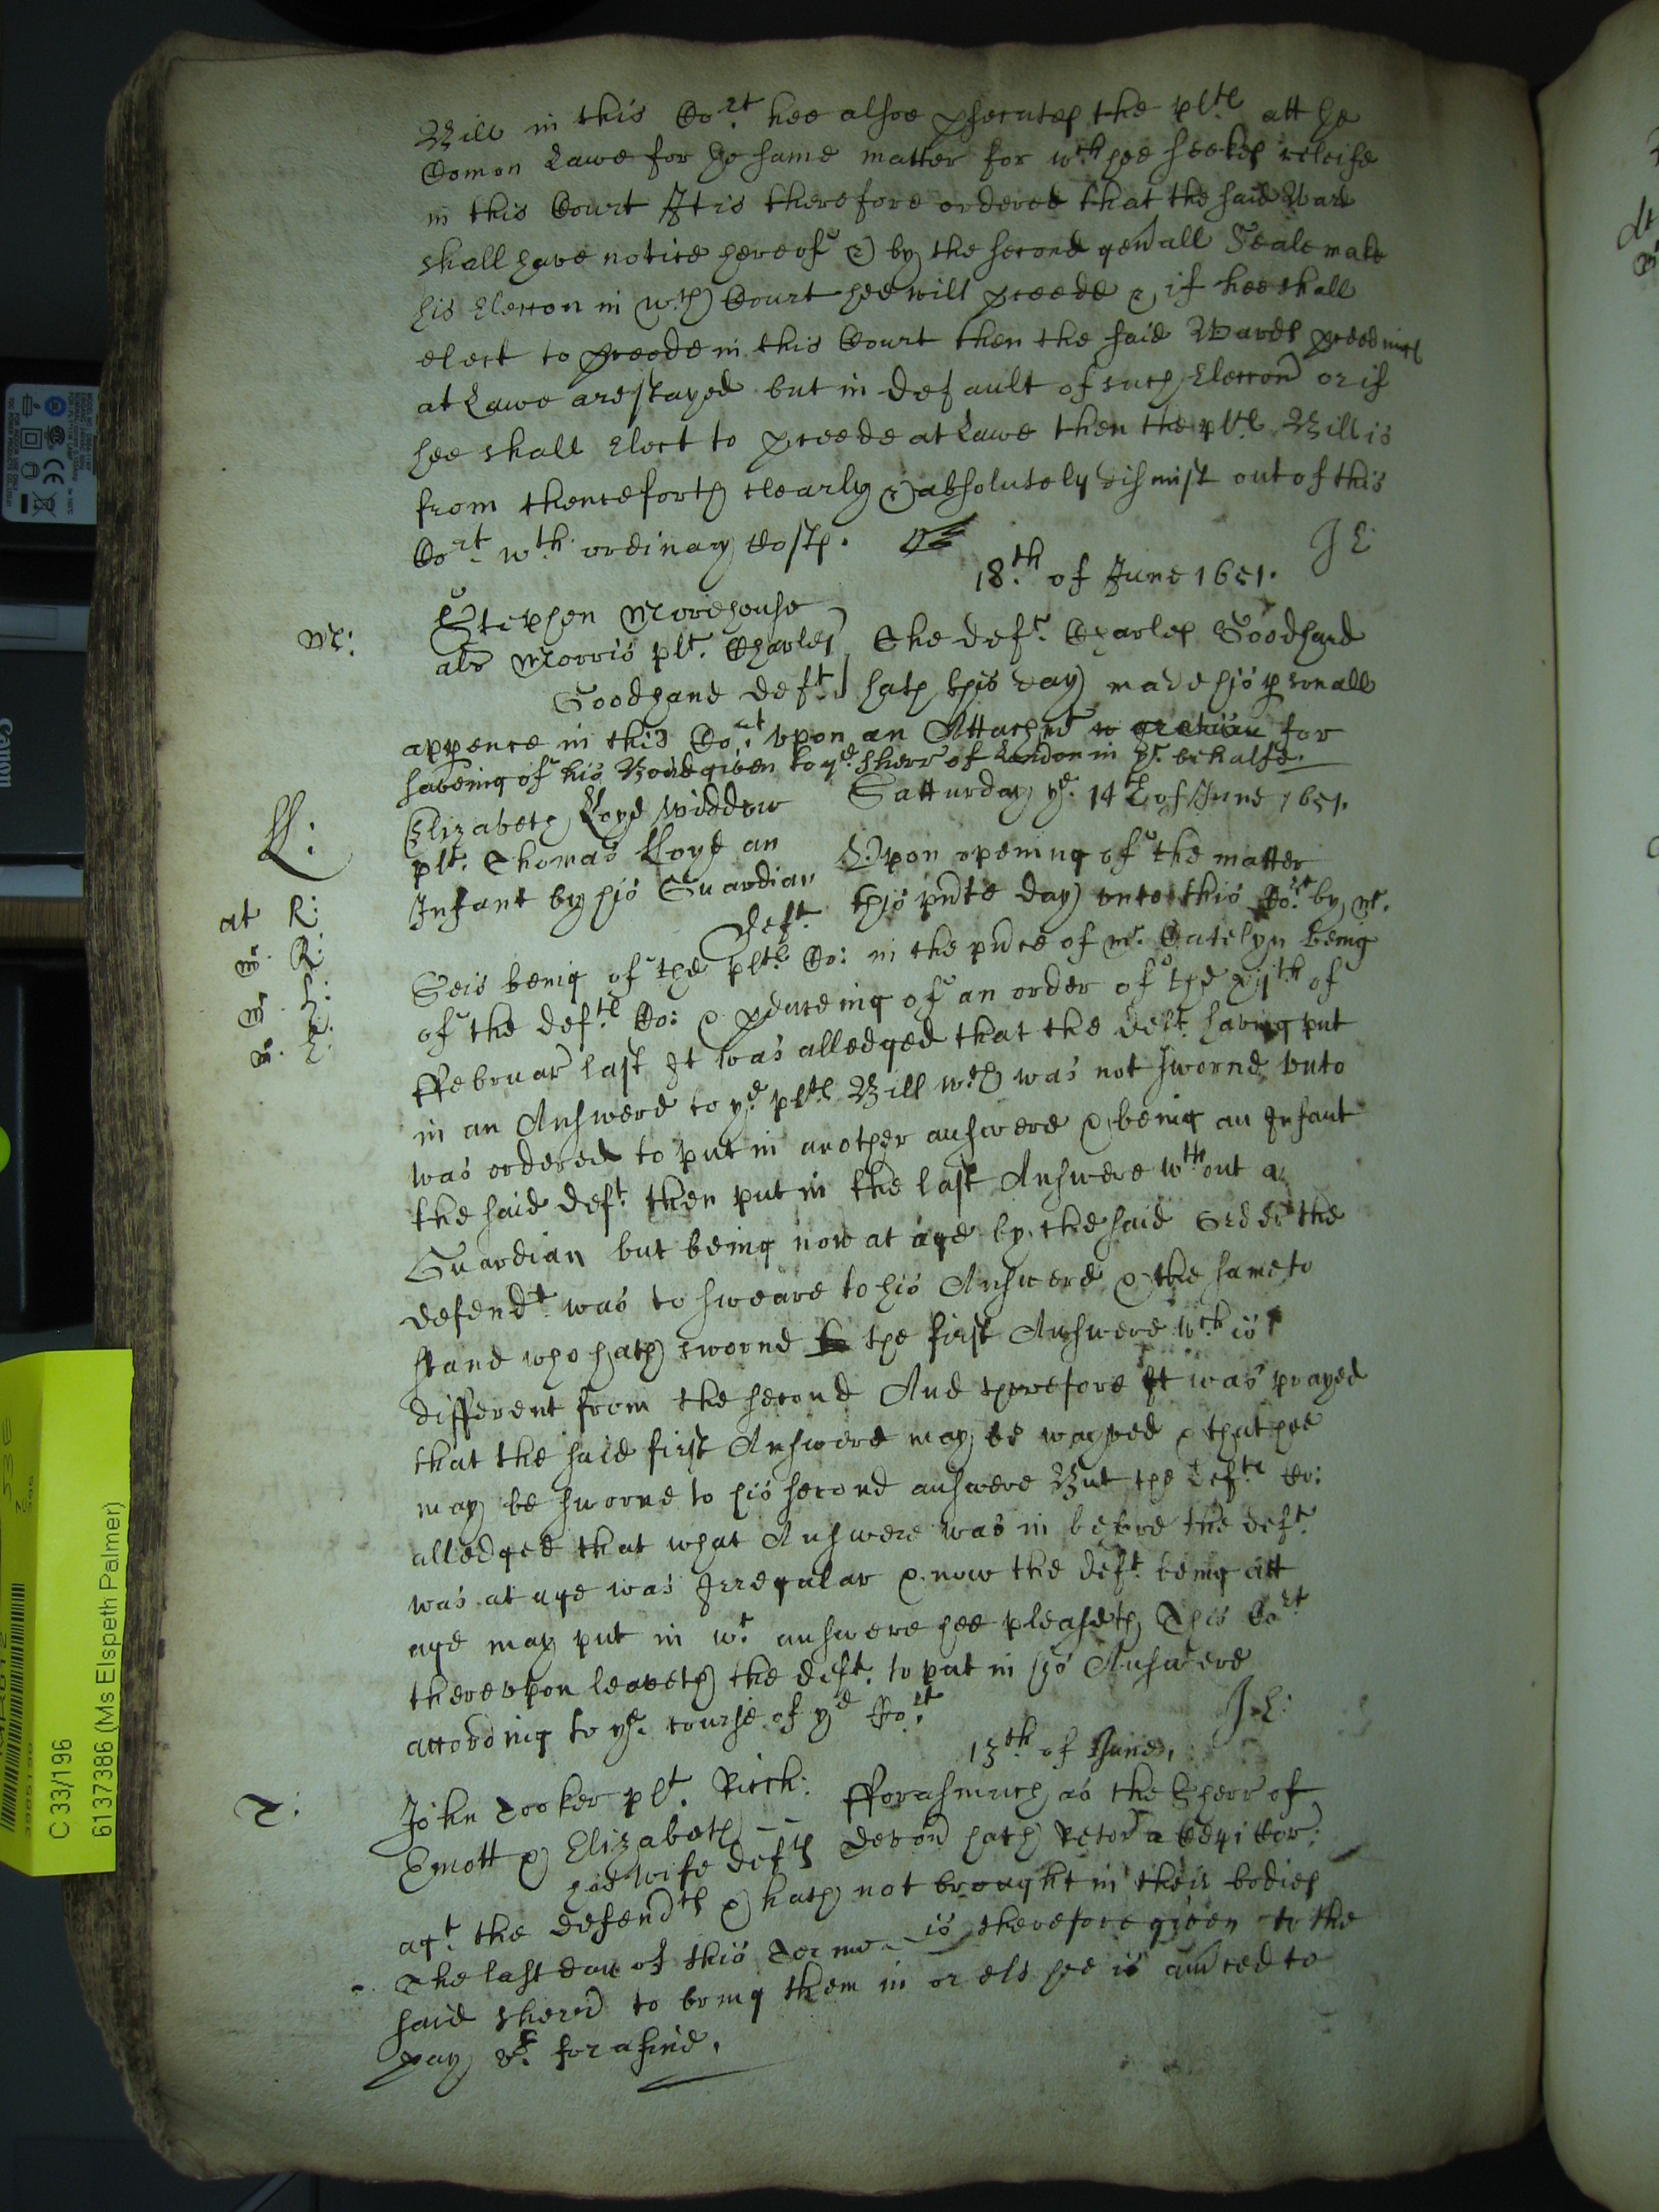 Bill in this Co:rt hee alsoe psecutes the pl:ts att ye
Comon Lawe for ye same matter for w:ch hee seekes releife
in this Court It is therefore ordered that the said Ward
shall have notice hereof & by the second genall Seale make
his Eleccon in w:ch Court hee will pceede & if hee shall
elect to pceede in this Court then the said Wards pceedings
at Lawe are stayed but in default of such Eleccon or if
hee shall Elect to pceede at Lawe then the pl:ts Bill is
from thenceforth clearly & absolutely dismist out of this
Co:rt w:th ordinary Costs.
J E
18:th of June 1651.
M:
Stephen Morehouse
als Morris pl:t Charles
Goodhand def:t
The def:t Charles Goodhand
hath this day made his psonall
appence in this Co:rt vpon an Attachmt for
saveing of his Bond given to ye: sherr of London in yt: behalfe.
Satturday ye: 14th of June 1651.
Ll:
Elizabeth Lloyd Widdow
pl:t Thomas Lloyd an
Infant by his Guardian
def:t
Vpon opening of the matter
this pnte day vnto this Co:rt by Mr.
at R:
Mr. R:
Seis being of the pl:ts Co: in the pnce of Mr. Catelyn being
of the def:ts Co: & pduceing of an order of the xijth of
ffebruar last It was alledged that the def:t haveing put
in an Answere to ye: pl:ts Bill w:ch was not sworne vnto
was ordered to put in another answere & being an Infant
the said def:t then put in the last Answere w:thout a
Guardian but being now at age by the said Order the
defend:t was to sweare to his Answere & the same to
stand who hath sworne to the first Answere w:ch is
different from the second And therefore It was prayed
that the said first Answere may be wayved & that hee
may be sworne to his second answere But the def:ts Co:
alledged that what Answere was in before the def:t
was at age was Irregular & now the def:t being att
age may put in w:t answere hee pleaseth This Co:rt
therevpon leaveth the def:t to put in his Answere
according to ye: course of ye Co:rt
J.E:
13:th of June,
T:
John Tooker pl:t Rich:
Emott & Elizabeth
his wife def:ts
fforasmuch as the Sherr of
Devon hath Retor a Cepi Cor:
ag:t the defend:ts & hath not brought in their bodies
The last day of this Terme is therefore given to the
said Sherr to bring them in or els hee is amced to
pay for a fine.
C 33/196
6137386 (Ms Elspeth Palmer)
Canon